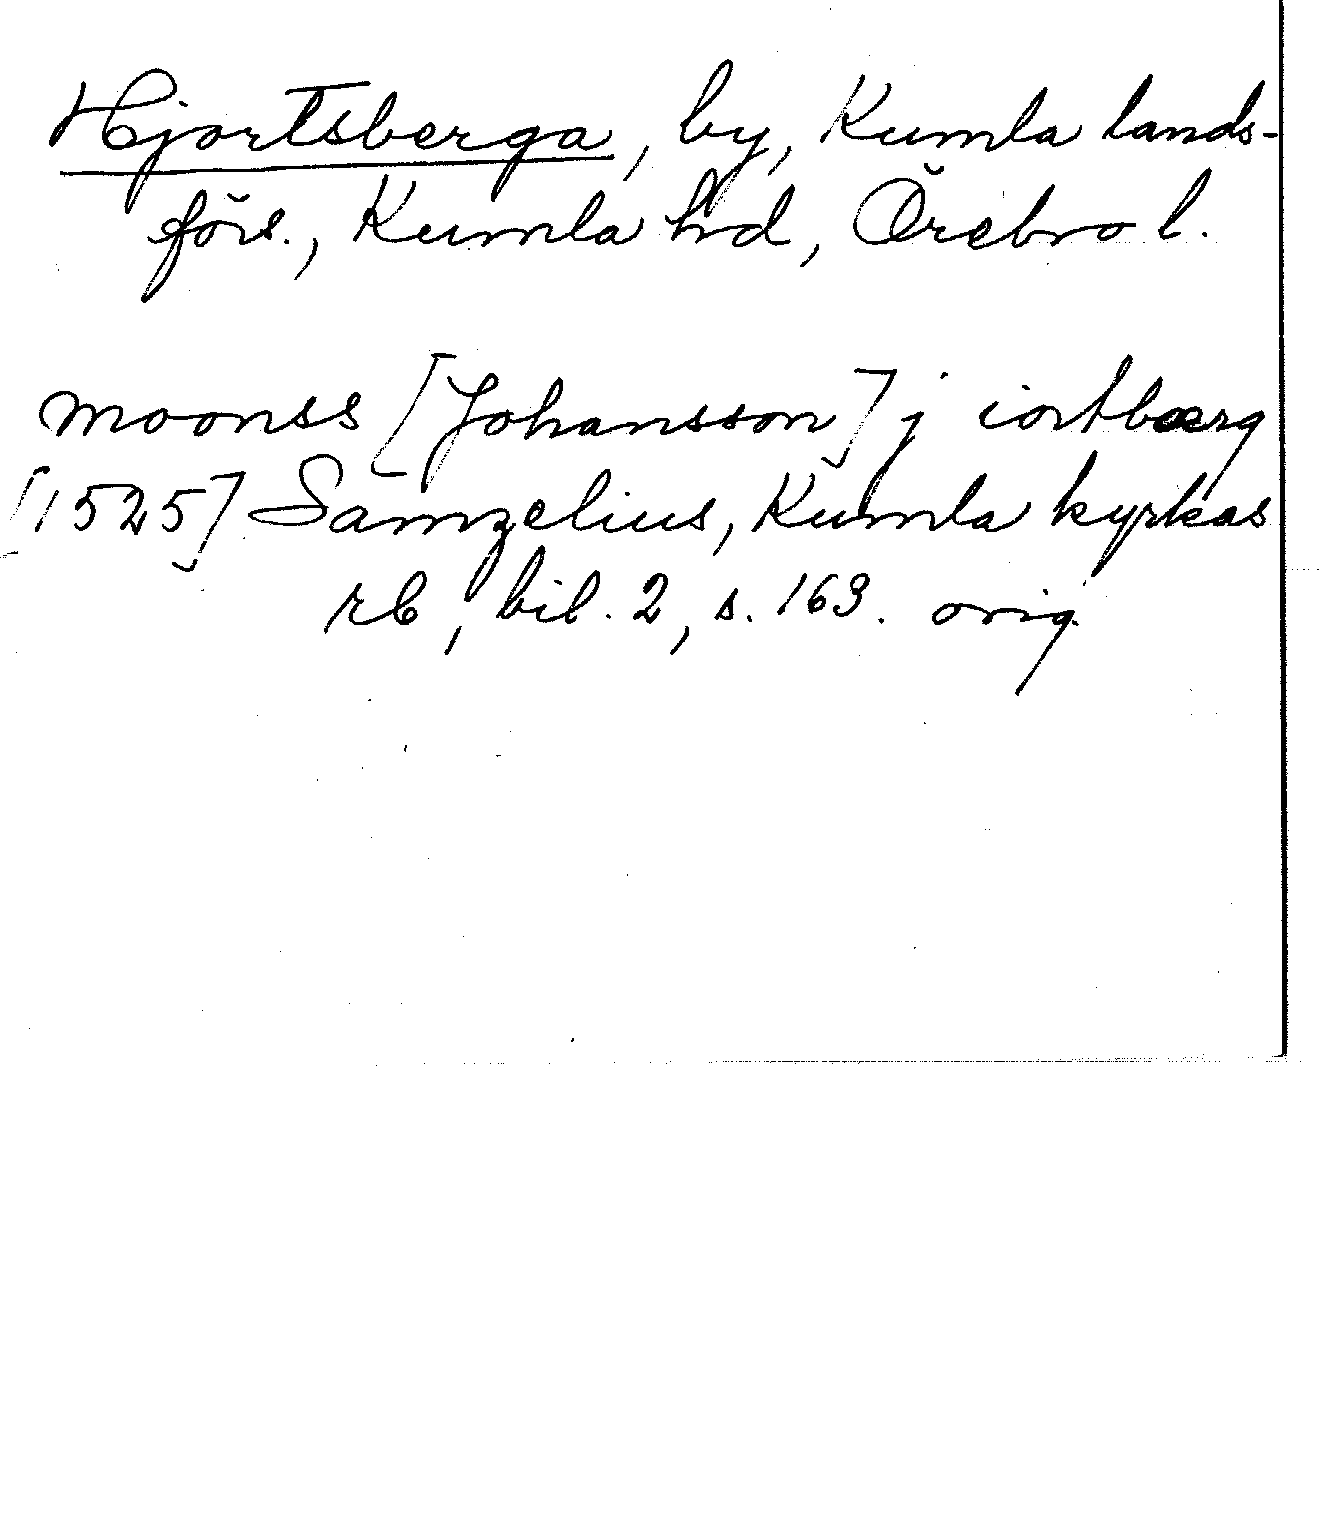 Hjortsberga, by, Kumla lands-
förs., Kumla hd, Örebro l.
moonss [Johansson] j iortbærg
[1525] Sämzelius, Kumla kyrkas
rb, bil. 2, s. 163. orig.